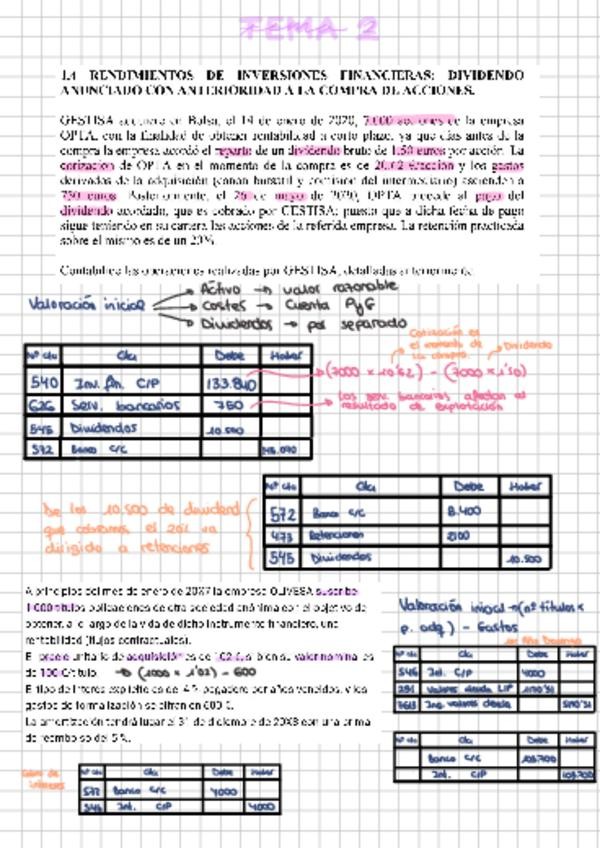 TEMA 2
1.4 RENDIMIENTOS DE INVERSIONES FINANCIERAS: DIVIDENDO
ANUNCIADO CON ANTERIORIDAD A LA COMPRA DE ACCIONES.
GESTISA adquiere en Bolsa, el 14 de enero de 2020, 7.000 acciones de la empresa
OPTA, con la finalidad de obtener rentabilidad a corto plazo, ya que días antes de la
compra la empresa acordó el reparto de un dividendo bruto de 1,50 euros por acción. La
cotización de OPTA en el momento de la compra es de €/acción y los gastos
derivados de la adquisición (canon bursátil y comisión del intermediario) ascienden a
750 euros. Posteriormente, el 26 de mayo de 2020, OPTA procede al pago del
dividendo acordado, que es cobrado por GESTISA; puesto que a dicha fecha de pago
sigue teniendo en su cartera las acciones de la referida empresa. La retención practicada
sobre el mismo es de un 20%
Contabilice las operaciones realizadas por GESTISA, detalladas anteriormente
Valoración inicial → Activo → valor razonable
→ Costes → Cuenta PyG
→ Dividendos → por separado
Cotización en el momento de la compra
Dividendo
Nº cta Cta Debe Haber
540 Inv. fin. C/P 133.840 → (7000 × ) - (7000 × 1'50)
626 Serv. bancarios 750 → Los serv. bancarios afectan al resultado de explotación
545 Dividendos 10.500
572 Banco c/c
De los 10.500 de dividend
que cobramos el 20% va
dirigido a retenciones
Nº cta Cta Debe Haber
572 Banco c/c 8.400
473 Retenciones 2100
545 Dividendos 10.500
A principios del mes de enero de 20X7 la empresa OLIVESA suscribe
1.000 títulos obligaciones de otra sociedad anónima con el objetivo de
obtener, a lo largo de la vida de dicho instrumento financiero, una
rentabilidad (flujos contractuales).
El precio unitario de adquisición es de 102 €, si bien su valor nominal es
de 100 €/título → (1000 × 1'02) - 600
El tipo de interés explícito es del 4% pagadero por años vencidos, y los
gastos de formalización se cifran en 600 €.
La amortización tendrá lugar el 31 de diciembre de 20X8 con una prima
de reembolso del 5%.
Valoración inicial → (nº títulos ×
p. adq) - Gastos
Nº cta Cta Debe Haber
546 Int. C/P 4000
Valores deuda L/P
Ing. valores deuda
Nº cta Cta Debe Haber
Banco c/c 103.700
Int. C/P 103.700
Cobro de
intereses
Nº cta Cta Debe Haber
572 Banco c/c 4000
546 Int. C/P 4000